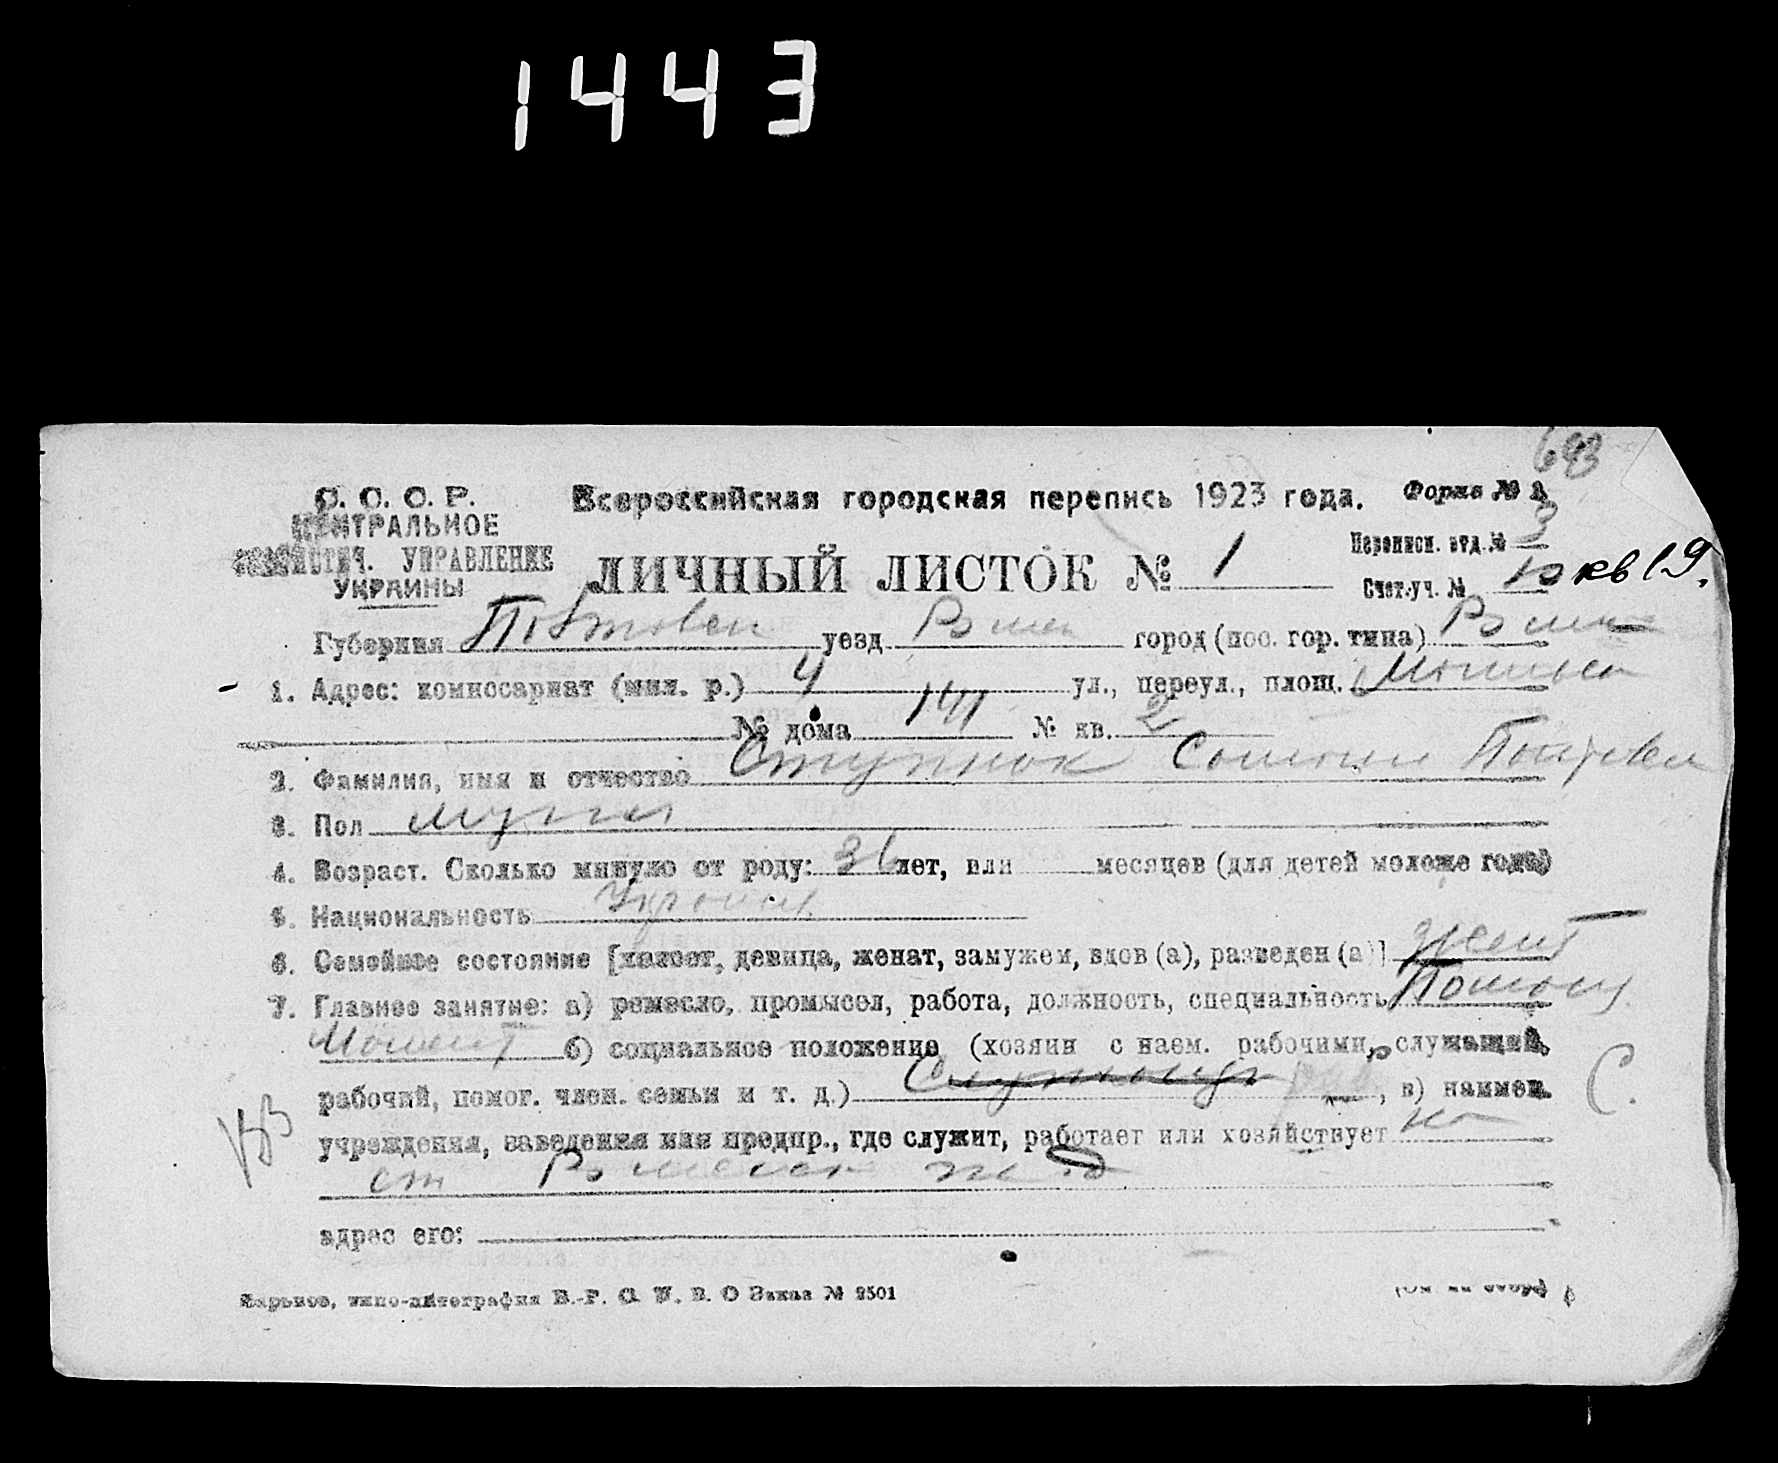 1443
693
С. С. С. Р. Всероссийская городская перепись 1923 года. Форма №
ЦЕНТРАЛЬНОЕ
СТАТИСТИЧ. УПРАВЛЕНИЕ
УКРАИНЫ
ЛИЧНЫЙ ЛИСТОК № 1
Переписн. отд. № 3
Счет.-уч. № 10 кв 19.
Губерния уезд город (пос. гор. типа)
1. Адрес: комиссариат (мил. р.) 4 ул., переул., площ.
№ дома 141 № кв. 2
2. Фамилия, имя и отчество Ступнюк
3. Пол мужск
4. Возраст. Сколько минуло от роду: 36 лет, или месяцев (для детей моложе года)
5. Национальность Украин.
6. Семейное состояние [холост, девица, женат, замужем, вдов (а), разведен (а)] женат
7. Главное занятие: а) ремесло, промысел, работа, должность, специальность Помощ.
б) социальное положение (хозяин с наем. рабочими, служащий,
рабочий, помог. член. семьи и т. д.) Служащий раб , в) наимен. С.
учреждения, заведения или предпр., где служит, работает или хозяйствует на
ст ж. д
адрес его:
Харьков, типо-литография В.-Р. О. У. В. О Заказ № 2501